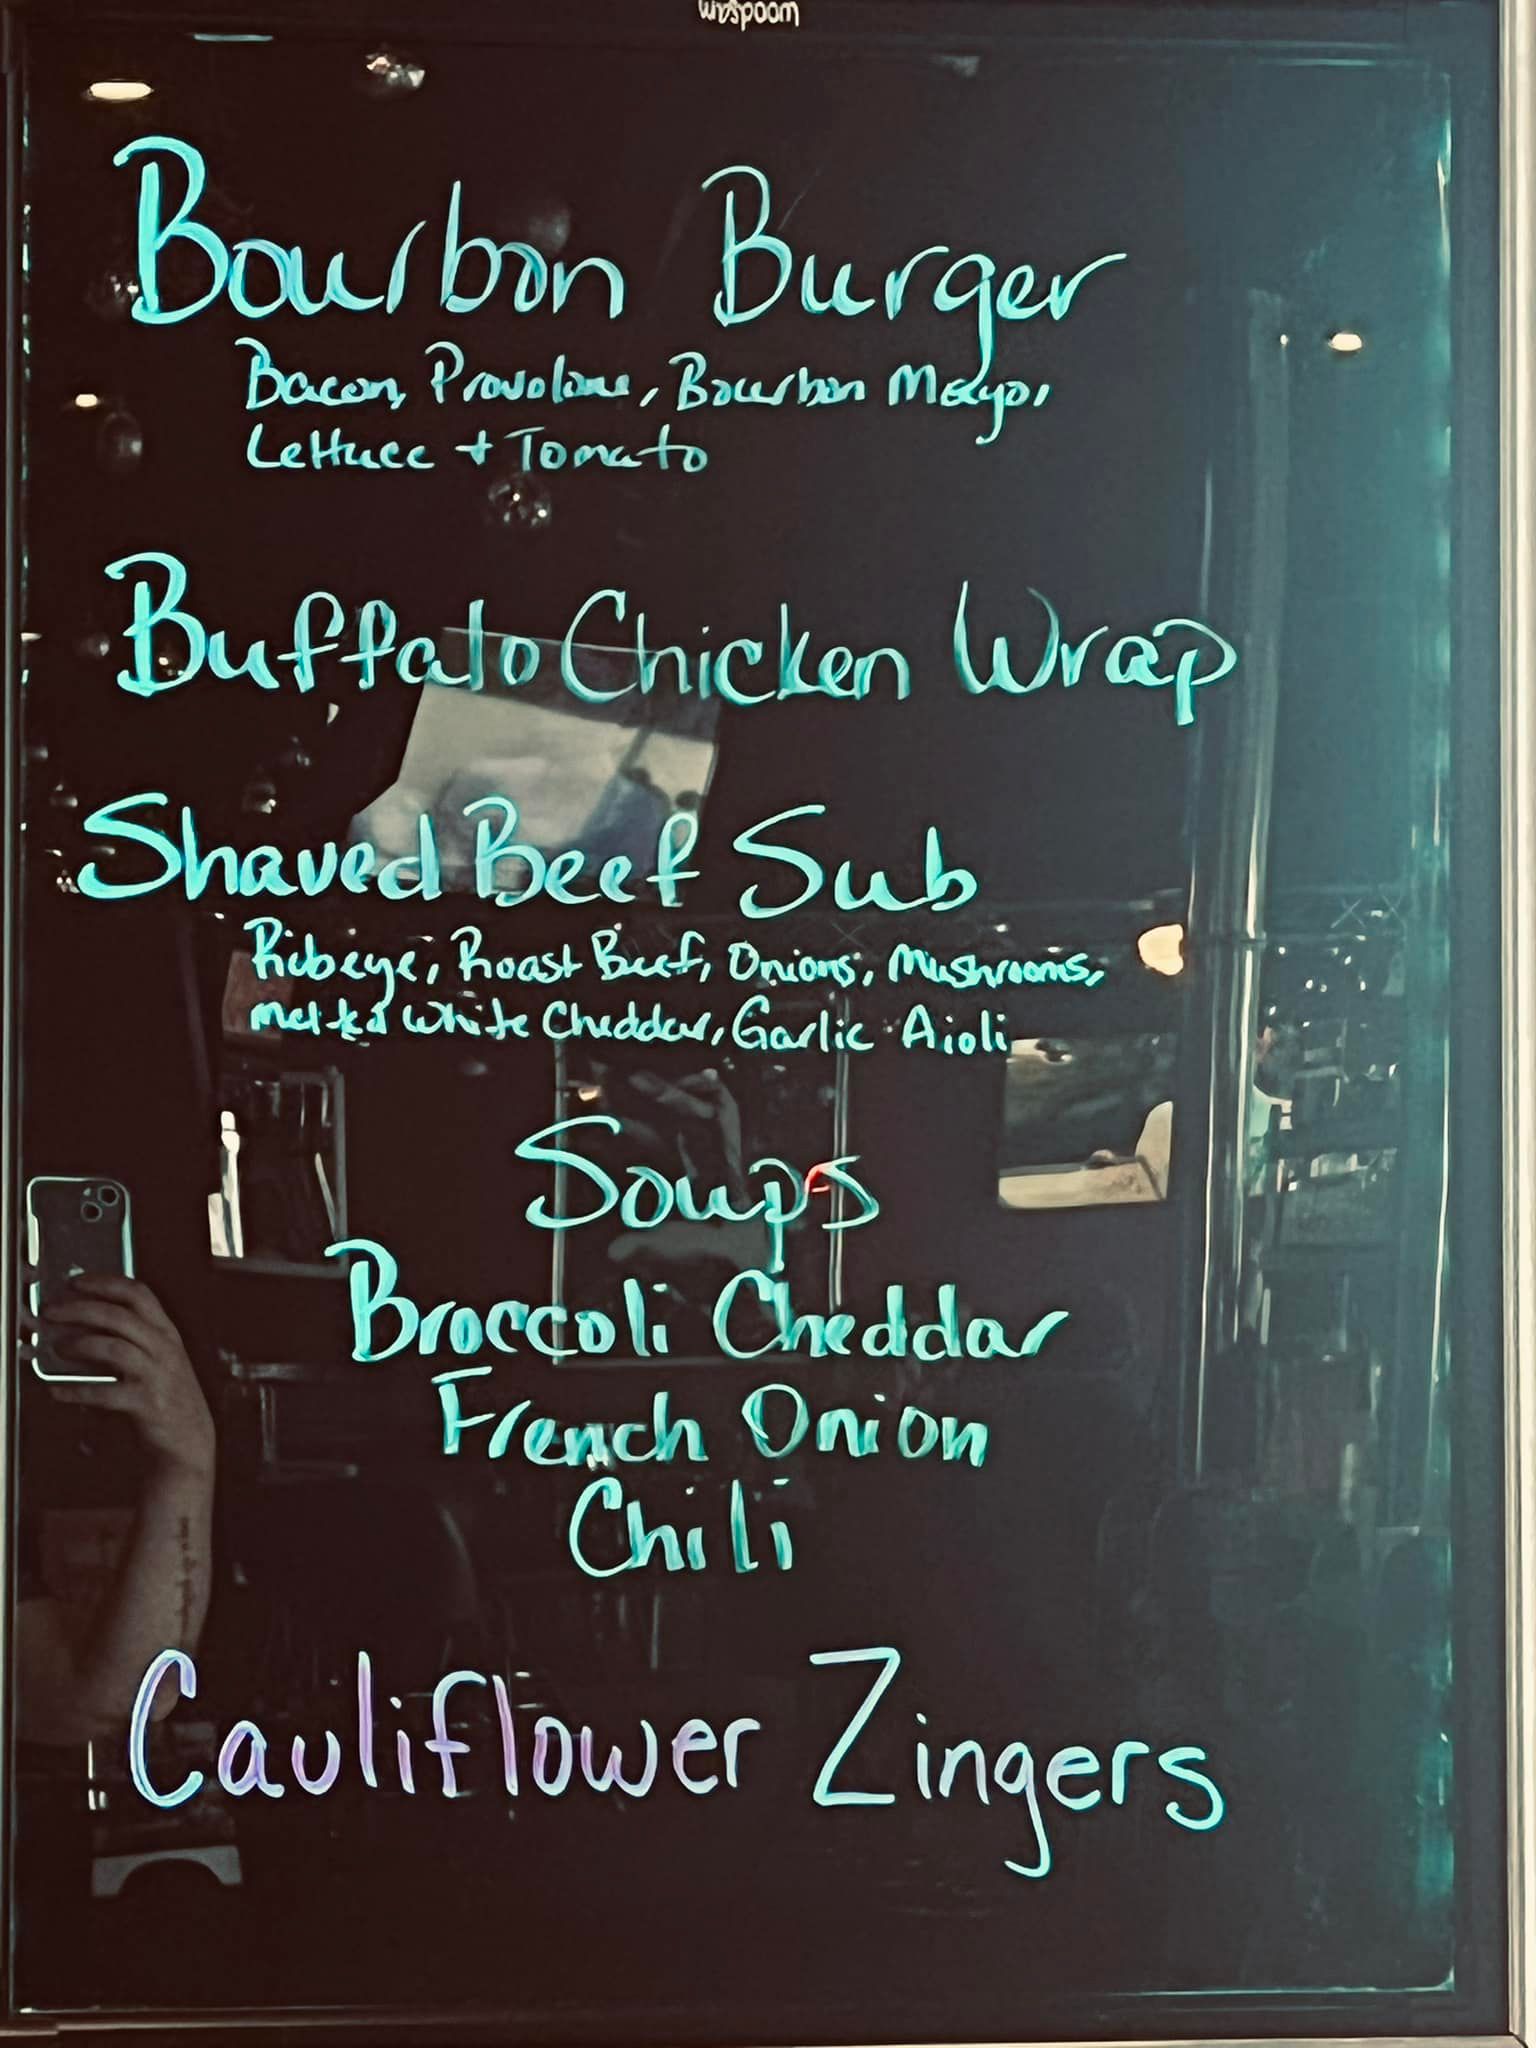 Bourbon Burger
Bacon, Provolone, Bourbon Mayo,
Lettuce + Tomato
Buffalo Chicken Wrap
Shaved Beef Sub
Ribeye, Roast Beef, Onions, Mushrooms,
Melted White Cheddar, Garlic Aioli
Soups
Broccoli Cheddar
French Onion
Chili
Cauliflower Zingers